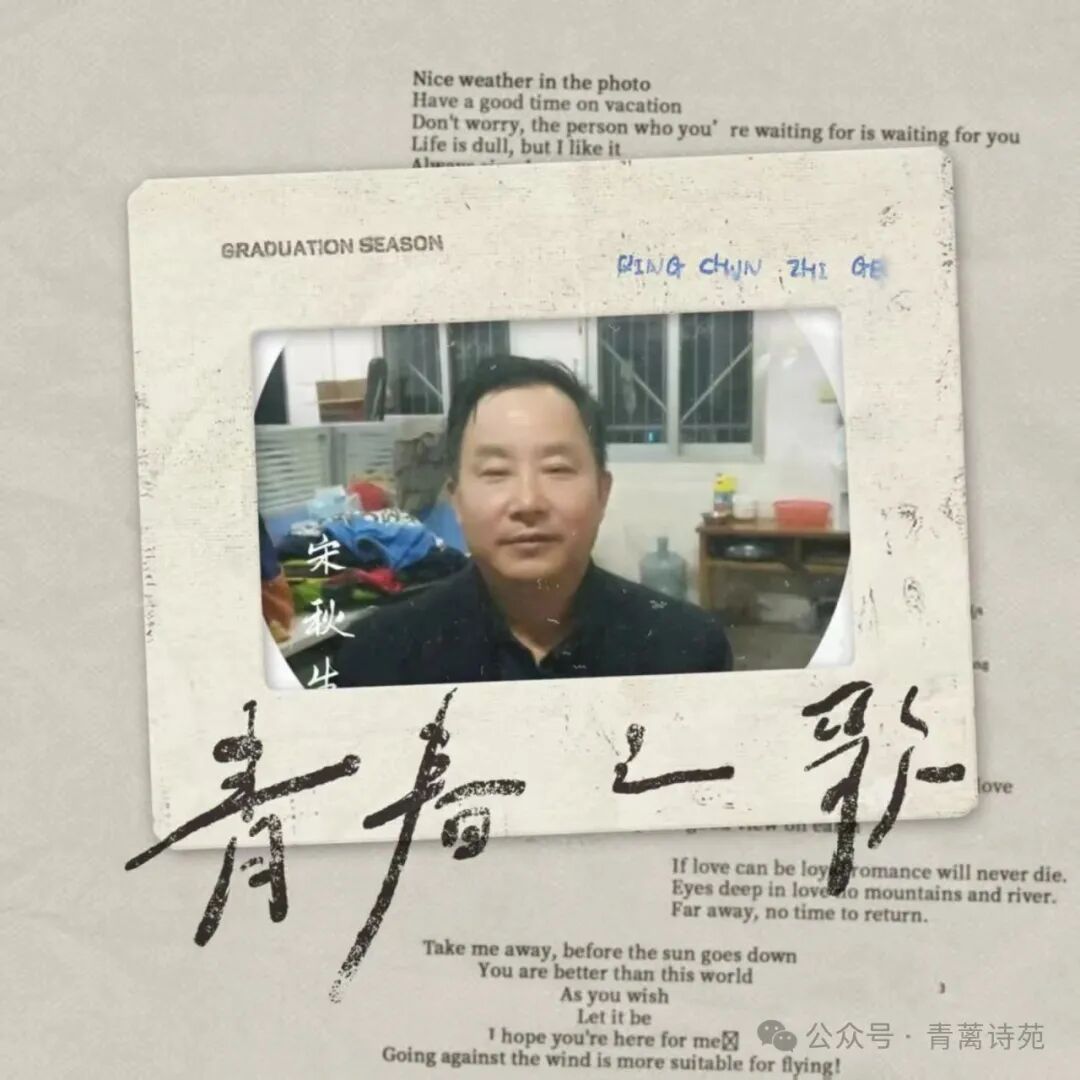 Nice weather in the photo
Have a good time on vacation
Don't worry, the person who you’re waiting for is waiting for you
Life is dull, but I like it
GRADUATION SEASON
QING CHUN ZHI GE
宋秋生
青春之歌
love
If love can be loy romance will never die.
Eyes deep in love no mountains and river.
Far away, no time to return.
Take me away, before the sun goes down
You are better than this world
As you wish
Let it be
I hope you're here for me
Going against the wind is more suitable for flying!
公众号 · 青蓠诗苑